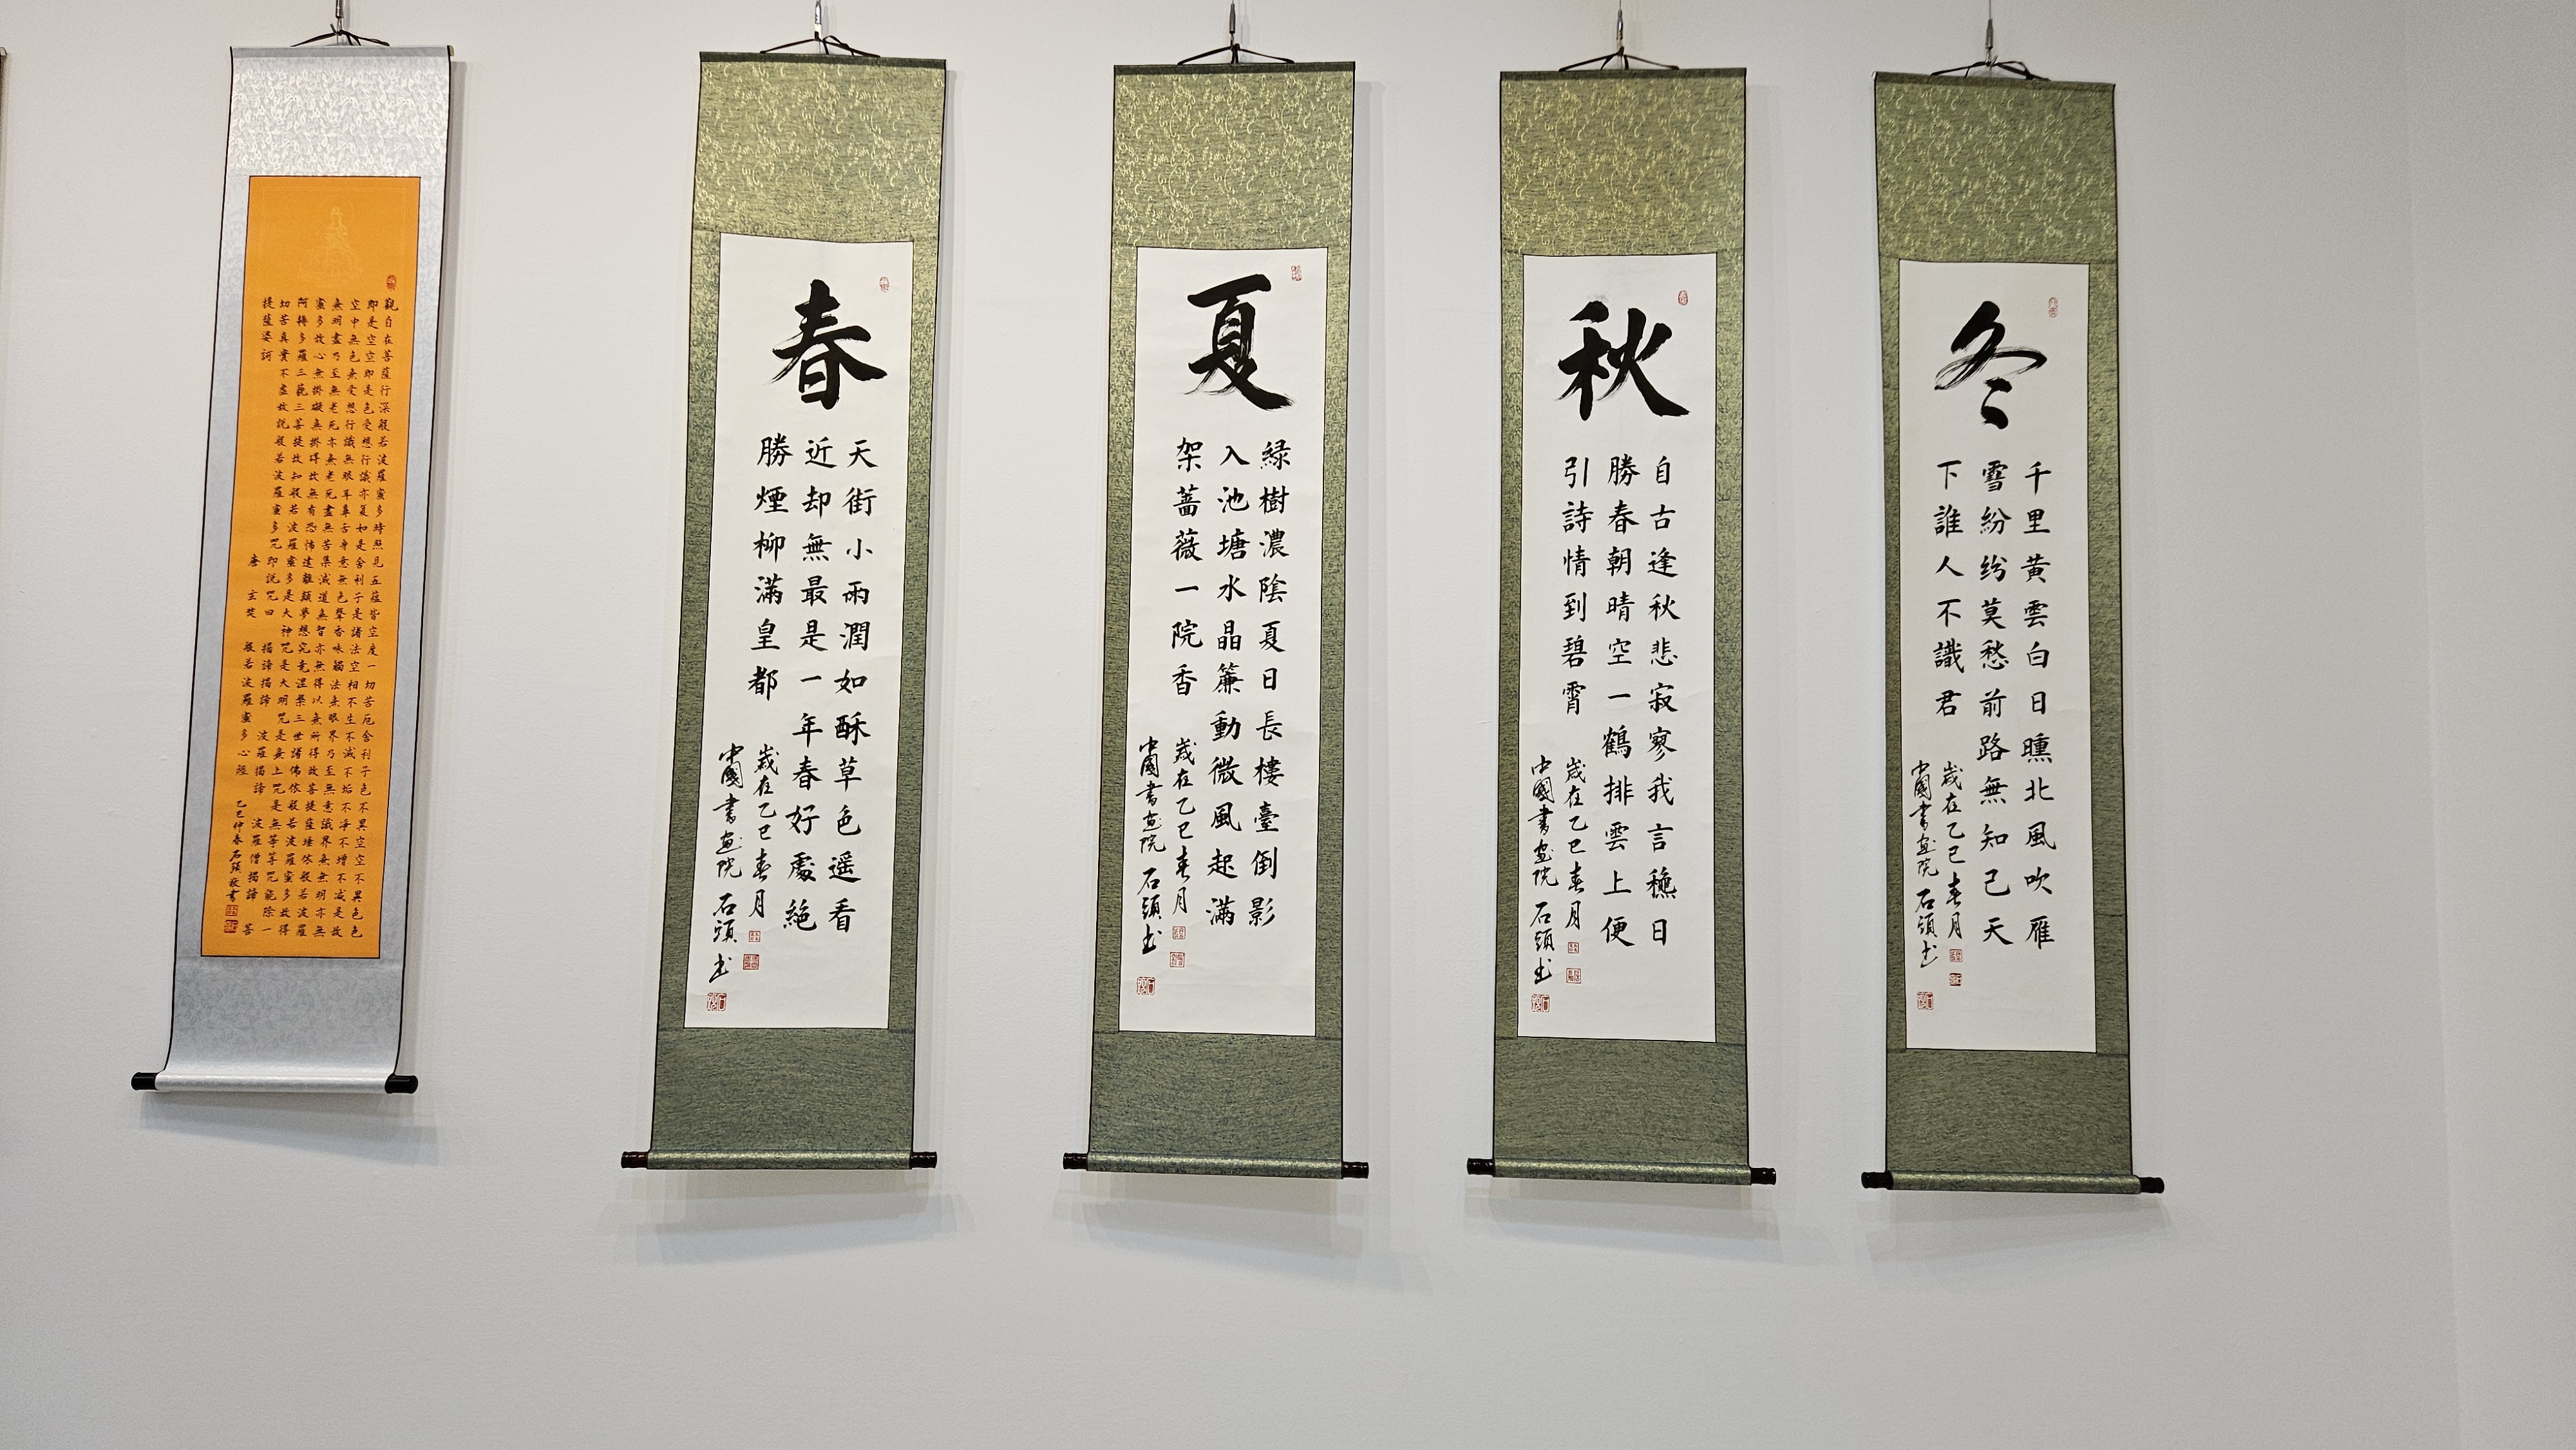 觀自在菩薩行深般若波羅蜜多時照見五蘊皆空度一切苦厄舍利子色不異空空不異色色
即是空空即是色受想行識亦復如是舍利子是諸法空相不生不滅不垢不淨不增不減是故
空中無色無受想行識無眼耳鼻舌身意無色聲香味觸法無眼界乃至無意識界無無明亦無
無明盡乃至無老死亦無老死盡無苦集滅道無智亦無得以無所得故菩提薩埵依般若波羅
蜜多故心無掛礙無掛碍故無有恐怖遠離顛夢想究竟涅槃三世諸佛依般若波羅蜜多故得
阿耨多羅三藐三菩提故知般若波羅蜜多是大神咒是大明咒是無上咒是無等等咒能除一
切苦真實不虛故說般若波羅蜜多咒即說咒曰 揭諦揭諦 波羅揭諦 波羅僧揭諦 菩
提薩婆訶 唐 玄奘 般若波羅蜜多心經 乙巳仲春石頭敬書
春
天街小雨潤如酥草色遥看
近却無最是一年春好處絕
勝煙柳滿皇都
歲在乙巳春月
中國書画院石頭书
夏
緑樹濃陰夏日長樓臺倒影
入池塘水晶簾動微風起滿
架薔薇一院香
歲在乙巳春月
中國書画院石頭书
秋
自古逢秋悲寂寥我言穐日
勝春朝晴空一鶴排雲上便
引詩情到碧霄
歲在乙巳春月
中國書画院石頭书
冬
千里黄雲白日曛北風吹雁
雪紛紛莫愁前路無知己天
下誰人不識君
歲在乙巳春月
中國書画院石頭书